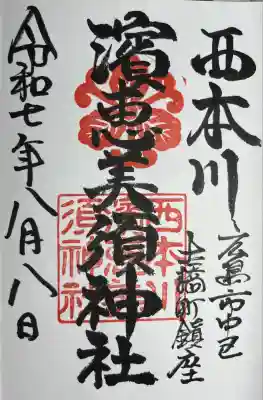 西本川
広島市中区
土橋町鎮座
濱恵美須神社
令和七年八月八日
西本川
須神社